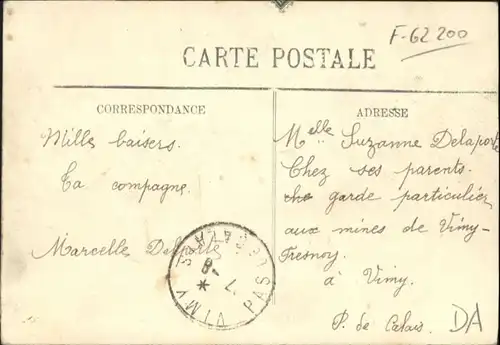 F-62 200
CARTE POSTALE
CORRESPONDANCE
ADRESSE
Mille baisers.
Ta compagne.
Marcelle Delporte
Melle Suzanne Delaporte
Chez ses parents.
garde particulier
aux mines de Vimy-
Fresnoy.
à Vimy.
P. de Calais.
VIMY PAS DE CALAIS
DA